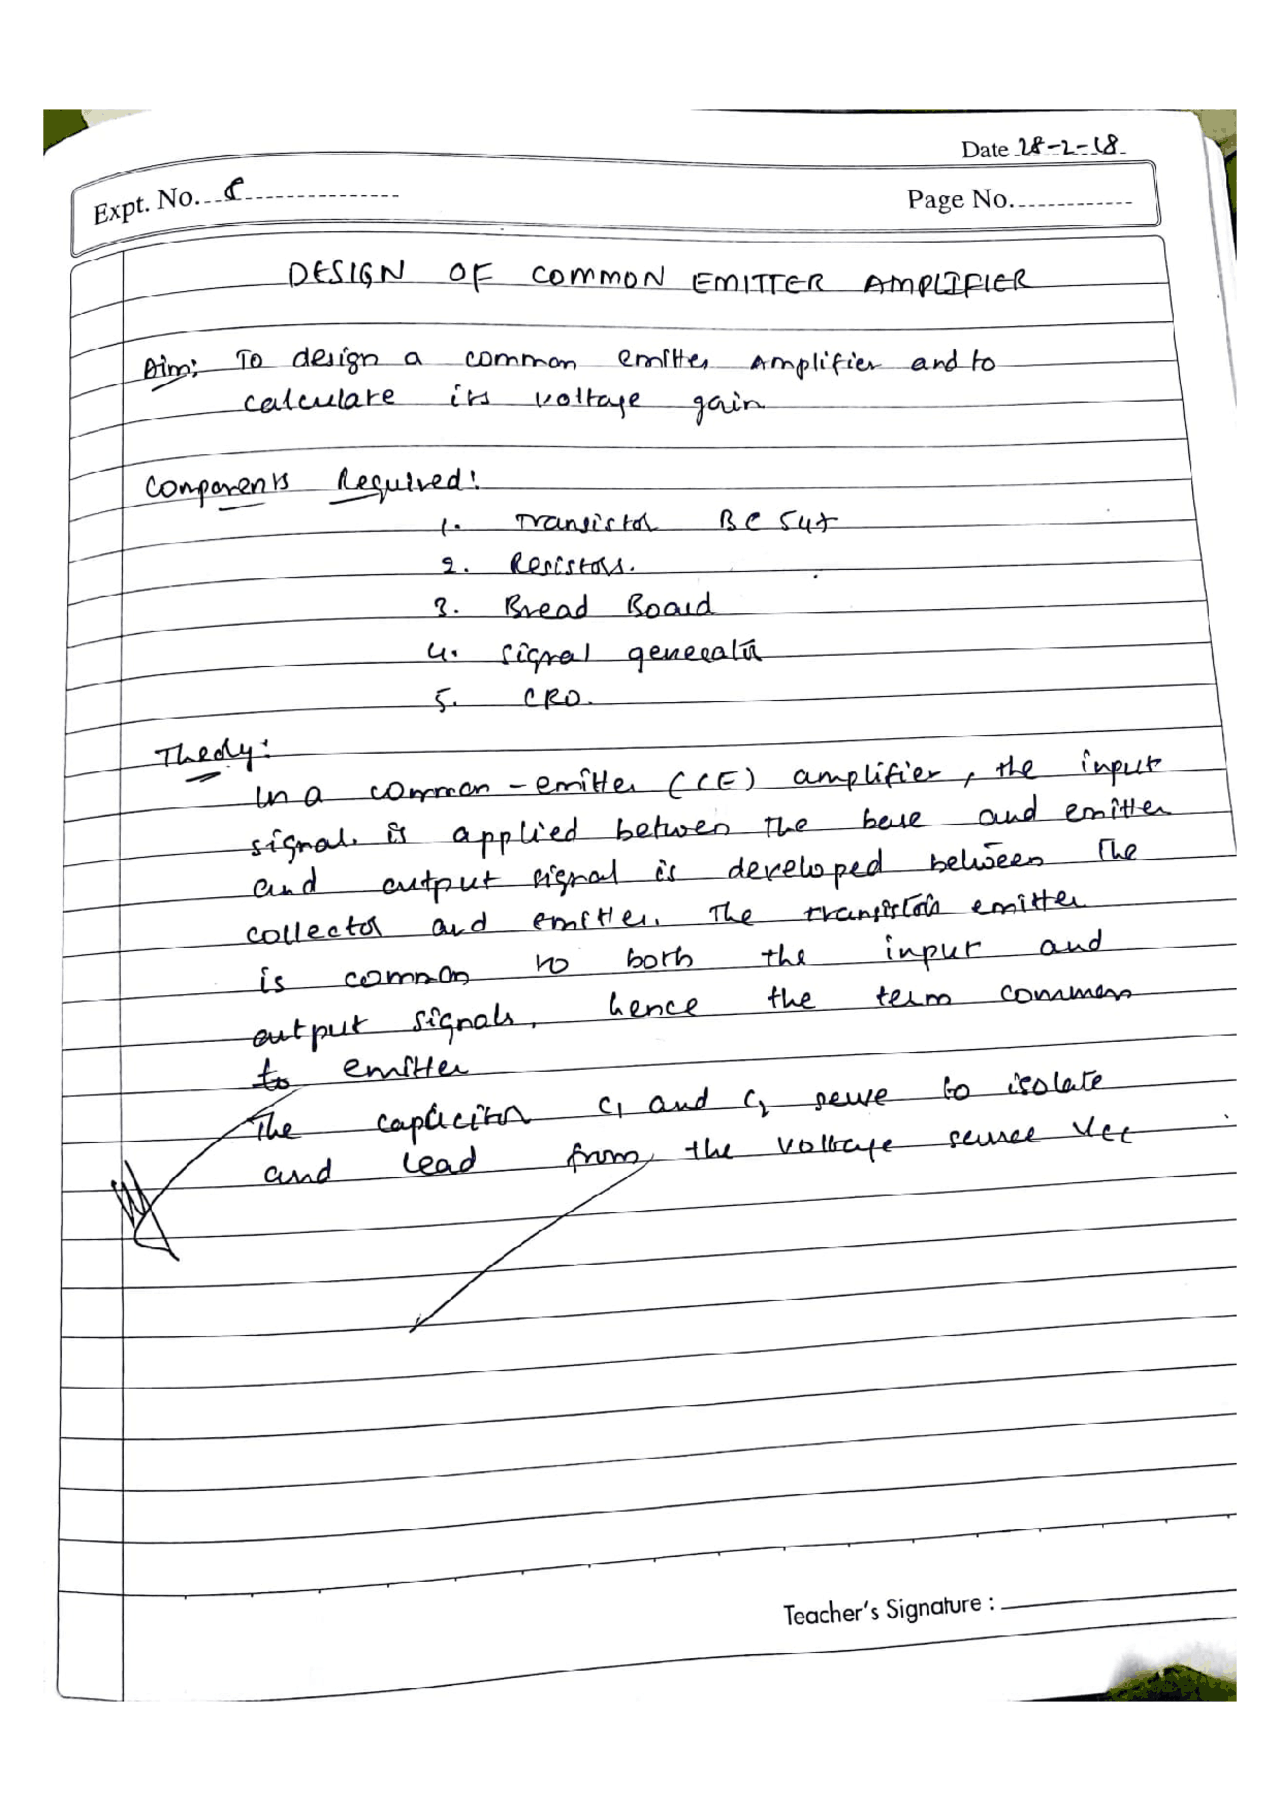 Date 28-2-18
Expt. No. 8
Page No.
DESIGN OF COMMON EMITTER AMPLIFIER
Aim: To design a common emitter Amplifier and to
calculate its voltage gain
Components Required:
1. Transistor BC 547
2. Resistors.
3. Bread Board
4. signal generator
5. CRO.
Theory:
In a common-emitter (CE) amplifier, the input
signal is applied between the base and emitter
and output signal is developed between the
collector and emitter. The transistors emitter
is common to both the input and
output signals, hence the term common
to emitter
The capacitor C1 and C2 serve to isolate
and lead from the voltage source Vcc
Teacher's Signature :